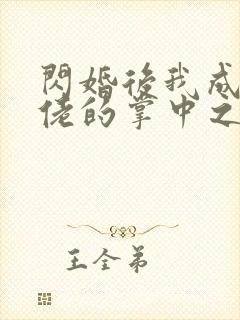 閃婚後我成
佬的掌中之
王全弟